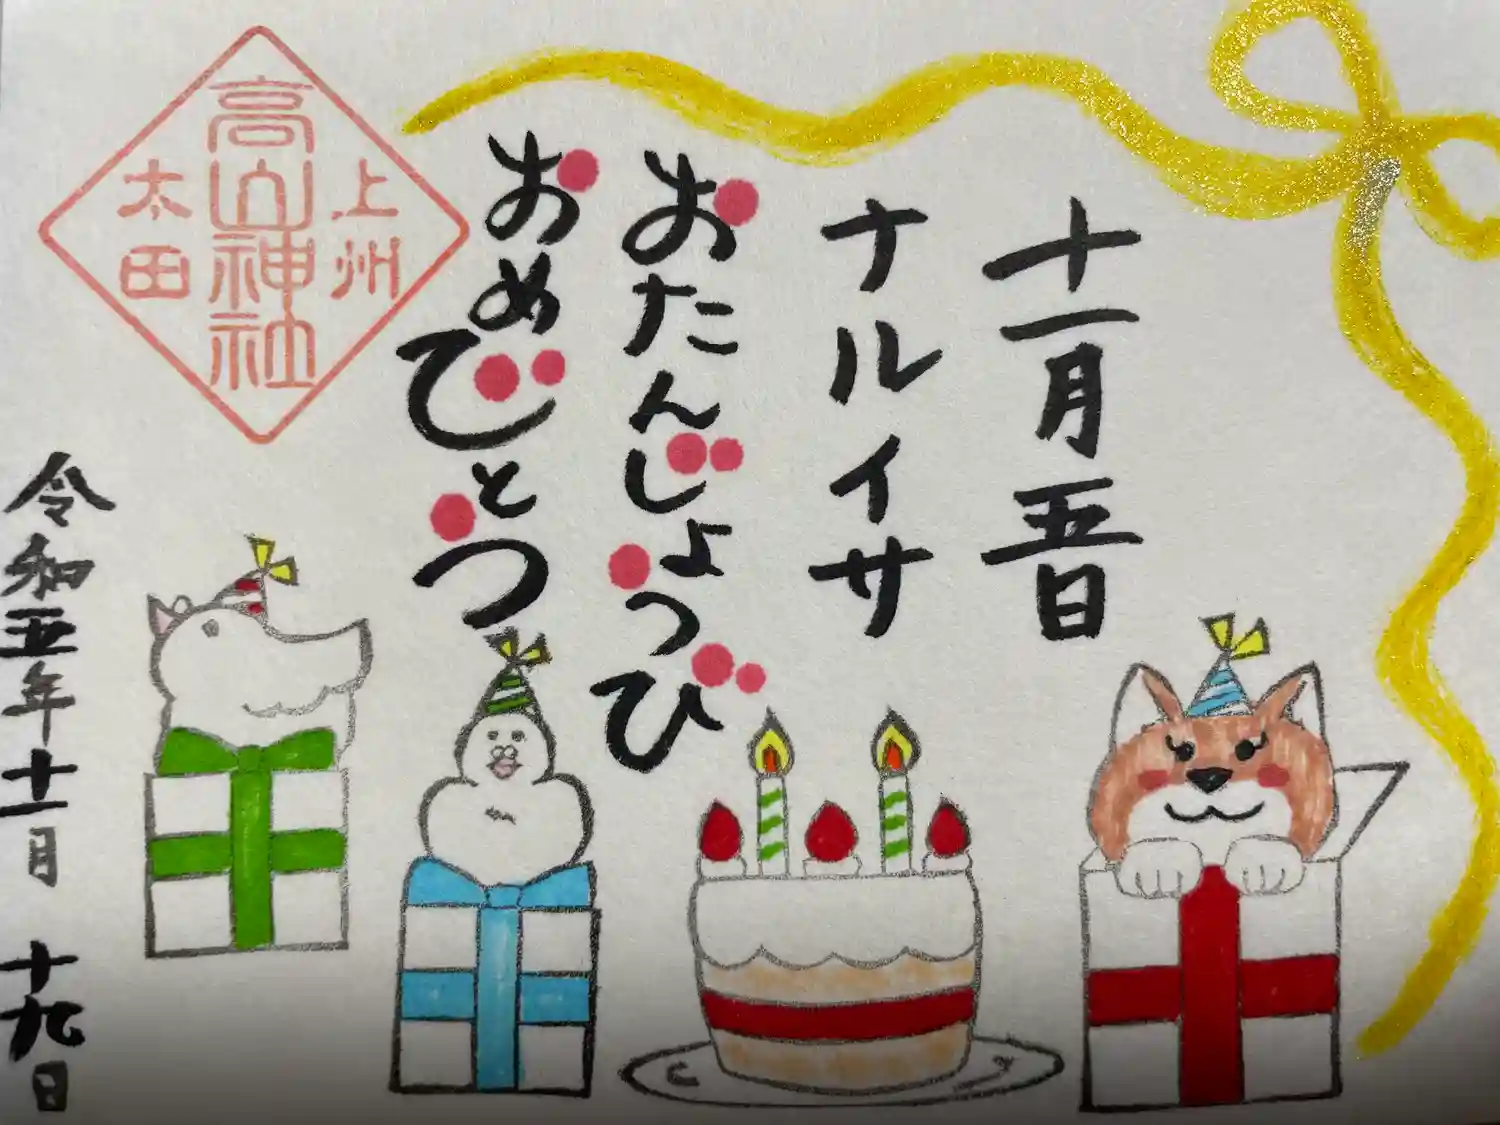 十一月五日
ナルイサ
おたんじょうび
おめでとう
上州
高山神社
太田
令和五年十一月 十九日